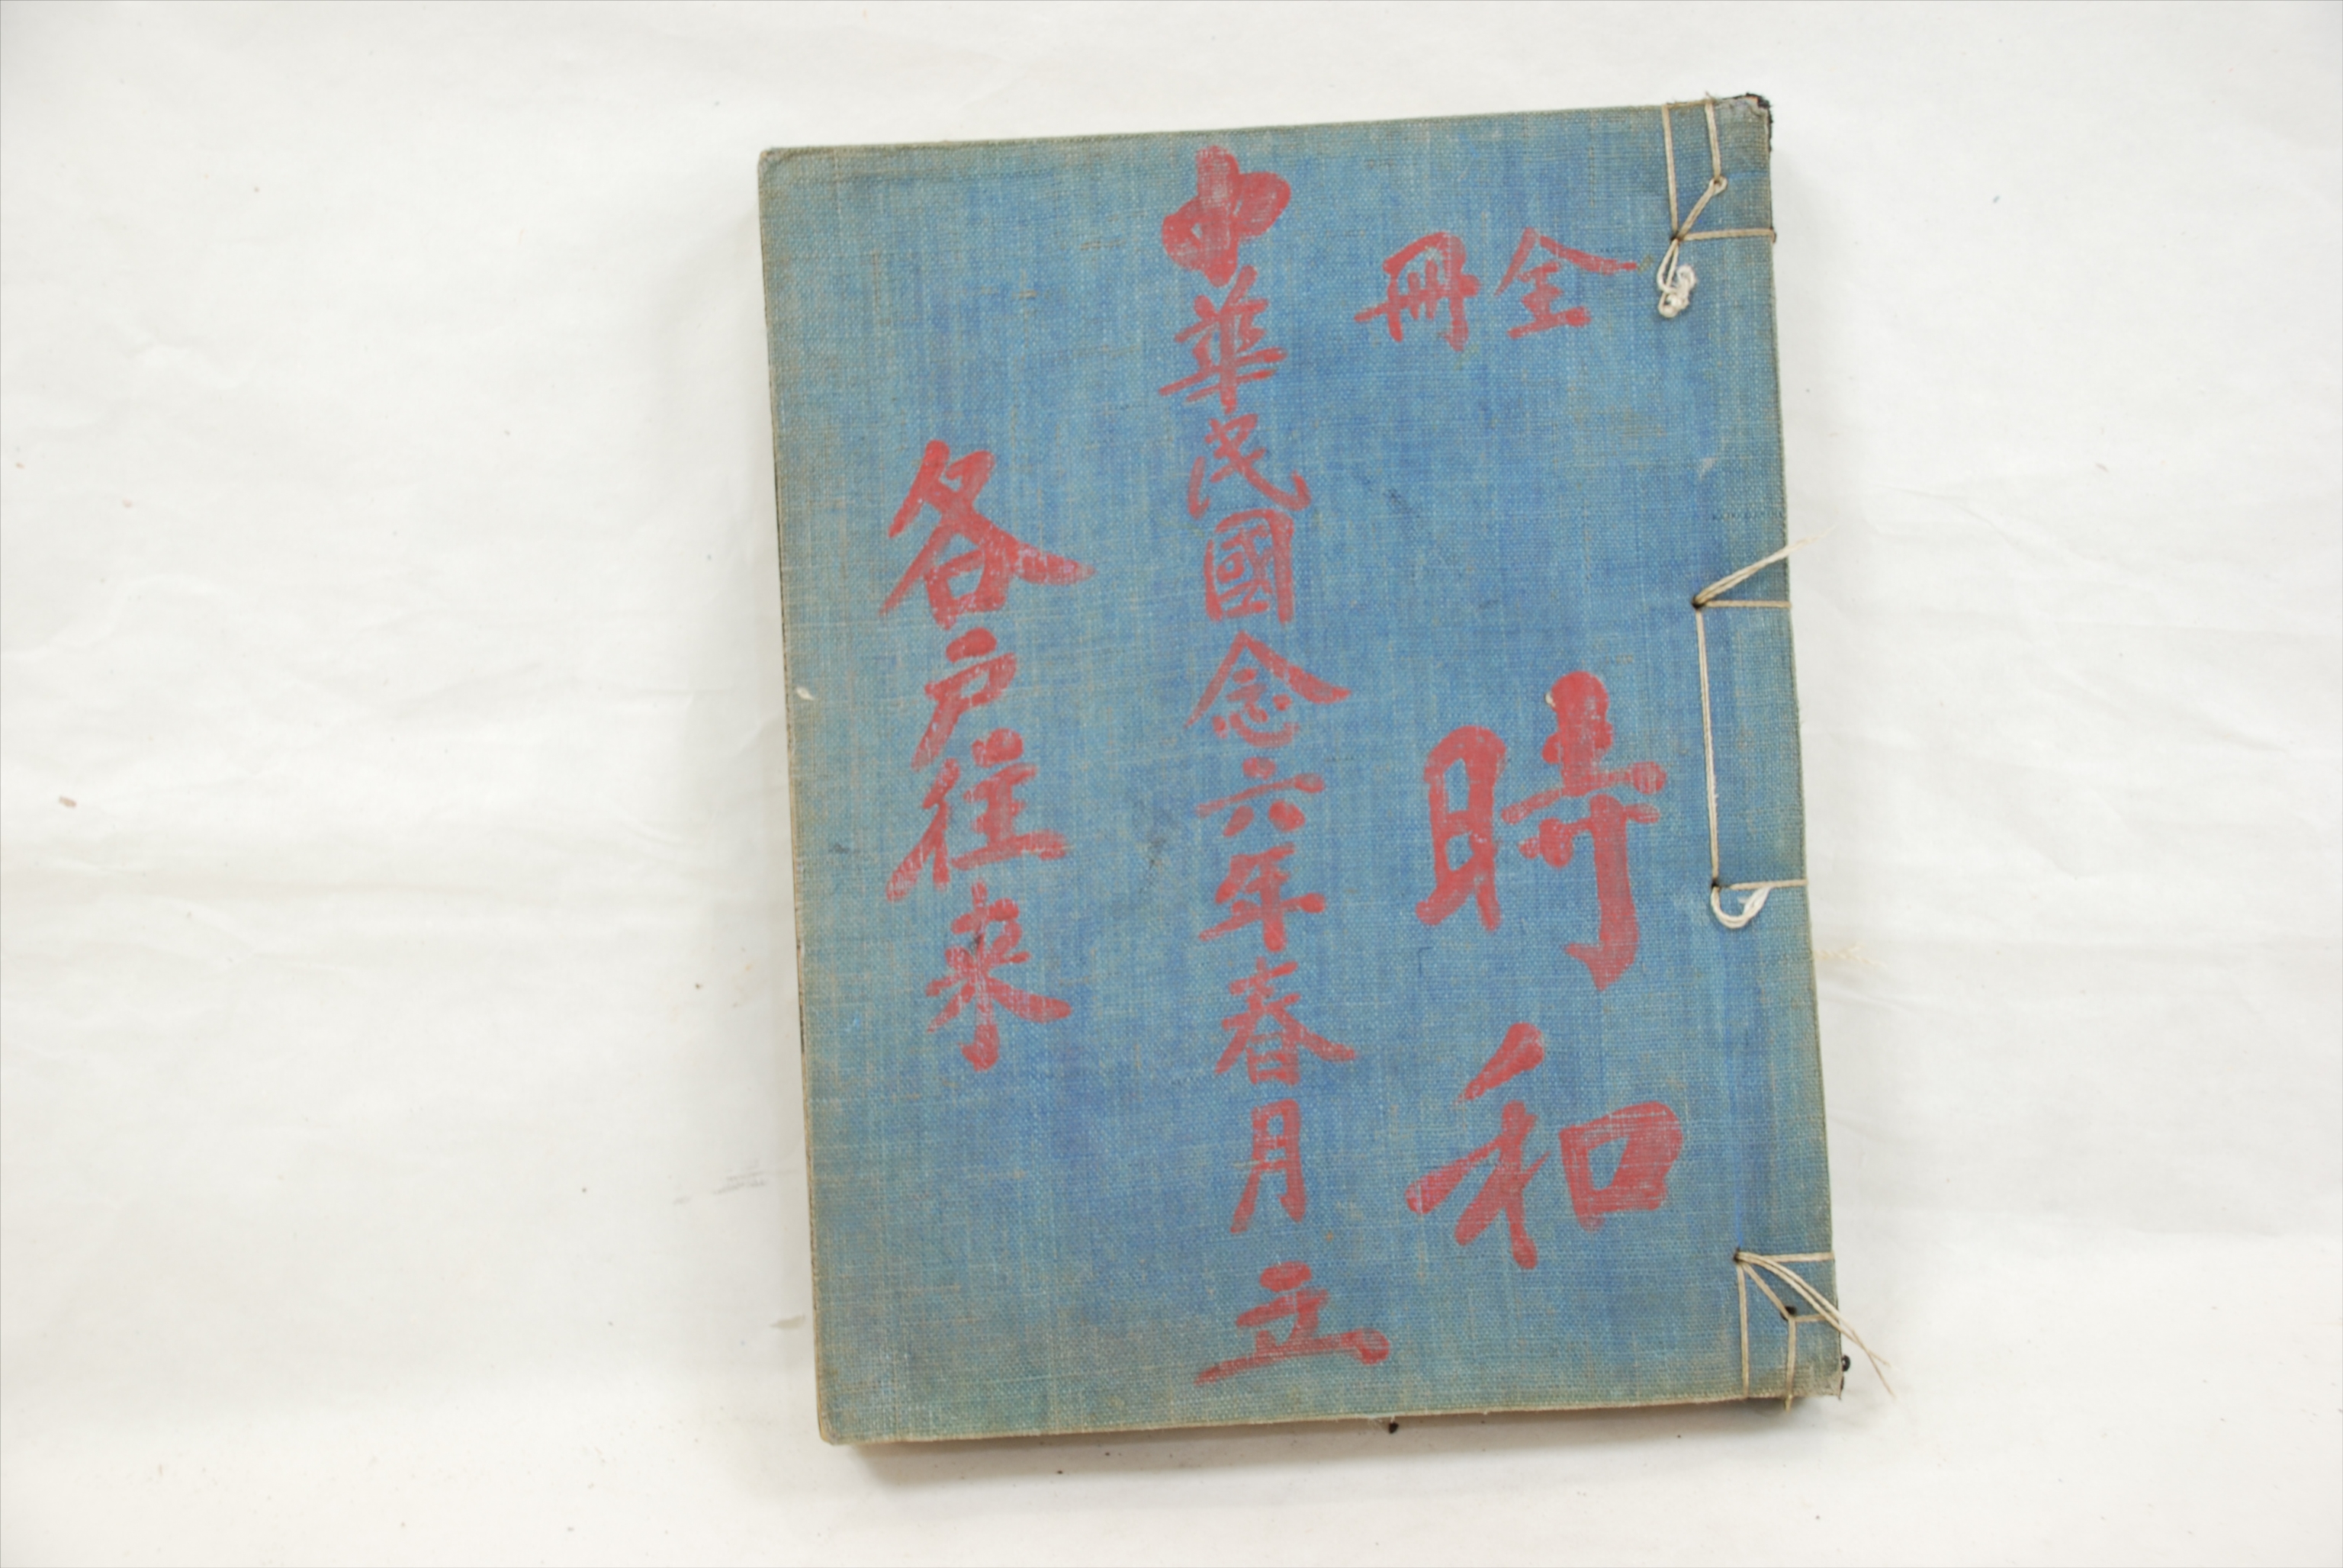 全冊
時和
中華民國念六年春月立
各户往来